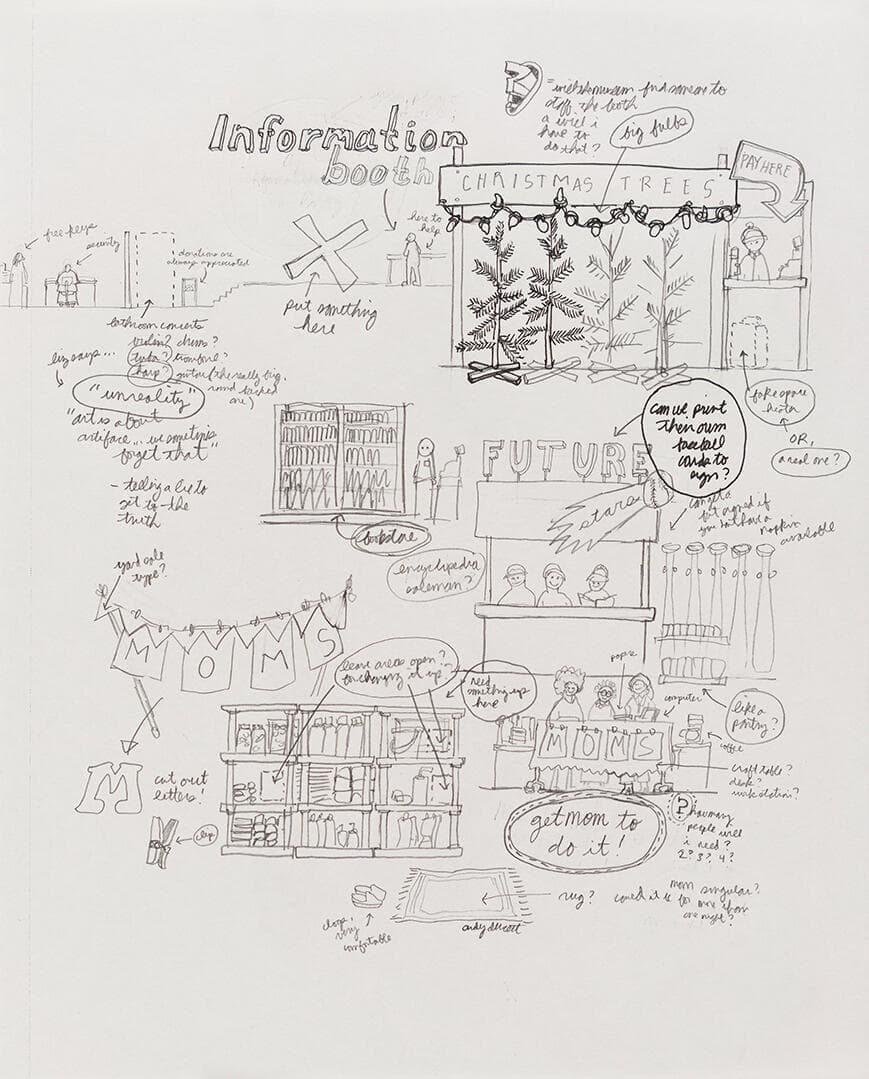 = will the museum find someone to
staff the booth
or will i
have to
do that?
Information
booth
big bulbs
CHRISTMAS TREES
PAY HERE
free keys
security
donations are
always appreciated
here to
help
put something
here
bathroom concerts
violin? drums?
tuba? trombone?
harp? guitar (the really big,
round backed
one)
liz says...
"unreality"
"art is about
artifice... we sometimes
forget that"
- telling a lie to
get to the
truth
fake space
heater
OR,
a real one?
can we print
then own
baseball
cards to
sign?
FUTURE
stars
can get a
bat signed if
you don't have a
napkin
available
bookstore
encyclopedia
salesman?
yard sale
type?
MOMS
leave areas open?
for changing it up?
need
something up
here
popsie
computer
like a
pantry?
MOMS
coffee
craft table?
desk?
workstation?
M
cut out
letters!
clip
get mom to
do it!
?
how many
people will
i need?
2? 3? 4?
mom singular?
could it be for more than
one night?
rug?
clogs,
very
comfortable
andy ducett